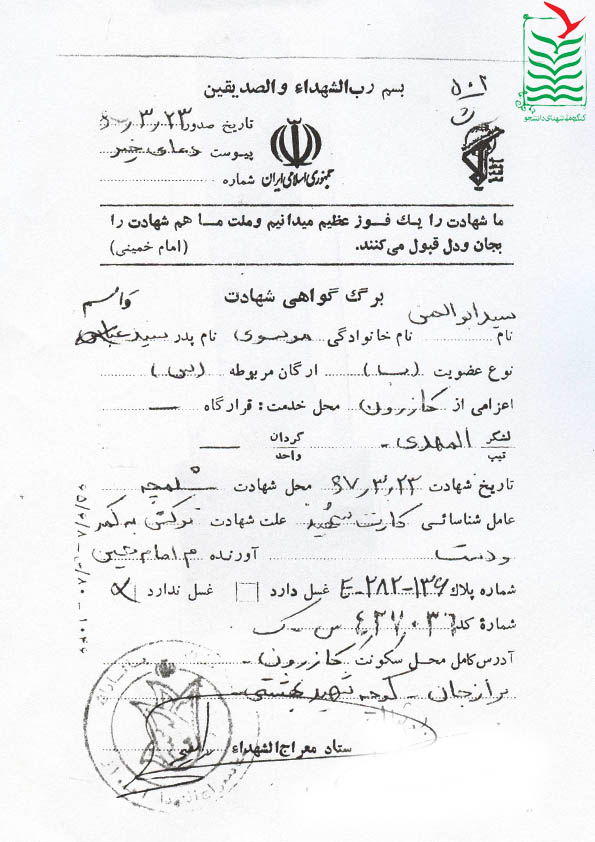 کنگره ملی شهدای دانشجو
بسم رب الشهداء والصدیقین
تاریخ صدور ۲۳ر۳ر
پیوست دعای خیر
جمهوری اسلامی ایران
شماره
ما شهادت را یک فوز عظیم میدانیم وملت ما هم شهادت را
بجان ودل قبول می‌کنند. (امام خمینی)
برگ گواهی شهادت
نام سیدابوالحسن نام خانوادگی موسوی نام پدر سید عباس
نوع عضویت (بسا) ارگان مربوطه (س)
اعزامی از کازرون محل خدمت: قرارگاه —
لشگر تیپ المهدی - گردان واحد —
تاریخ شهادت ۶۷ر۳ر۲۳ محل شهادت شلمچه
عامل شناسائی کارت علت شهادت ترکش به کمر
ودست آورنده م امام حسین
شماره پلاک E-282-136 غسل دارد غسل ندارد
شمارهٔ کد
آدرس کامل محل سکونت کازرون -
برازجان - کوچه شهید بهشتی -
ستاد معراج الشهداء